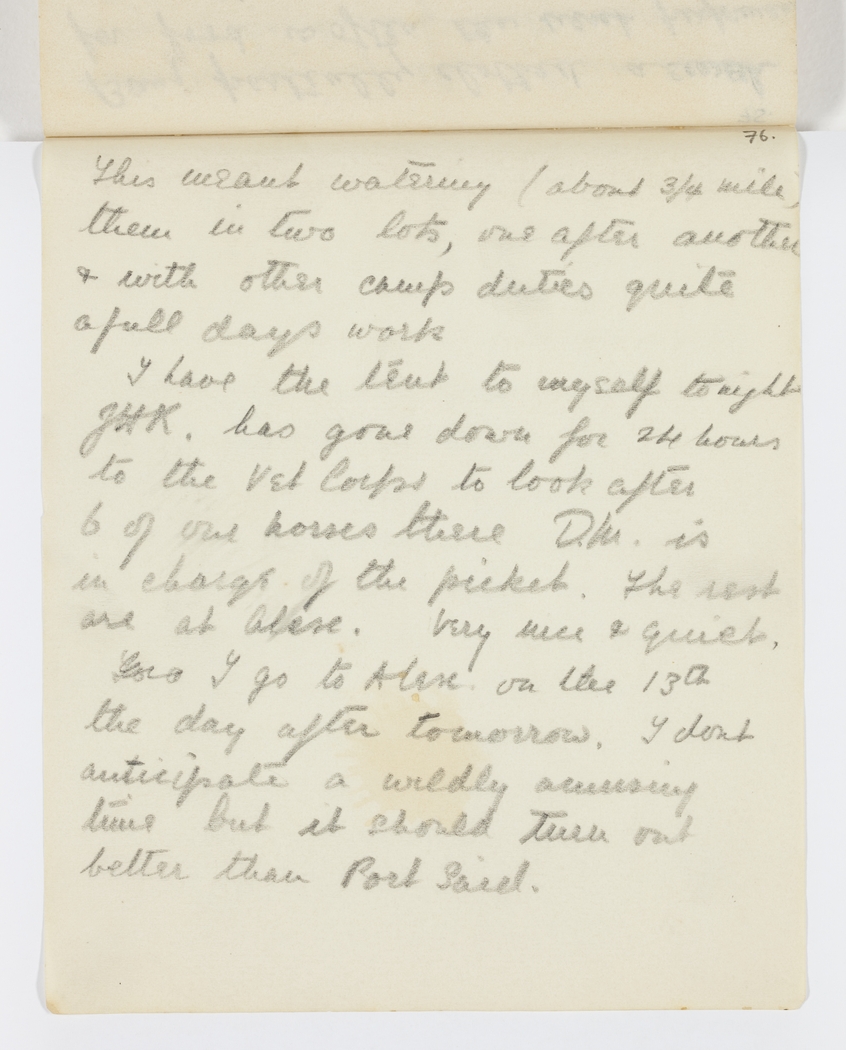 76.
This meant watering (about 3/4 mile)
them in two lots, one after another
& with other camp duties quite
a full days work
I have the tent to myself tonight
JHK. has gone down for 24 hours
to the Vet Corps to look after
6 of our horses there D.M. is
in charge of the picket. The rest
are at Alex. Very nice & quiet.
I go to Alex. on the 13th
the day after tomorrow. I dont
anticipate a wildly amusing
time but it should turn out
better than Port Said.